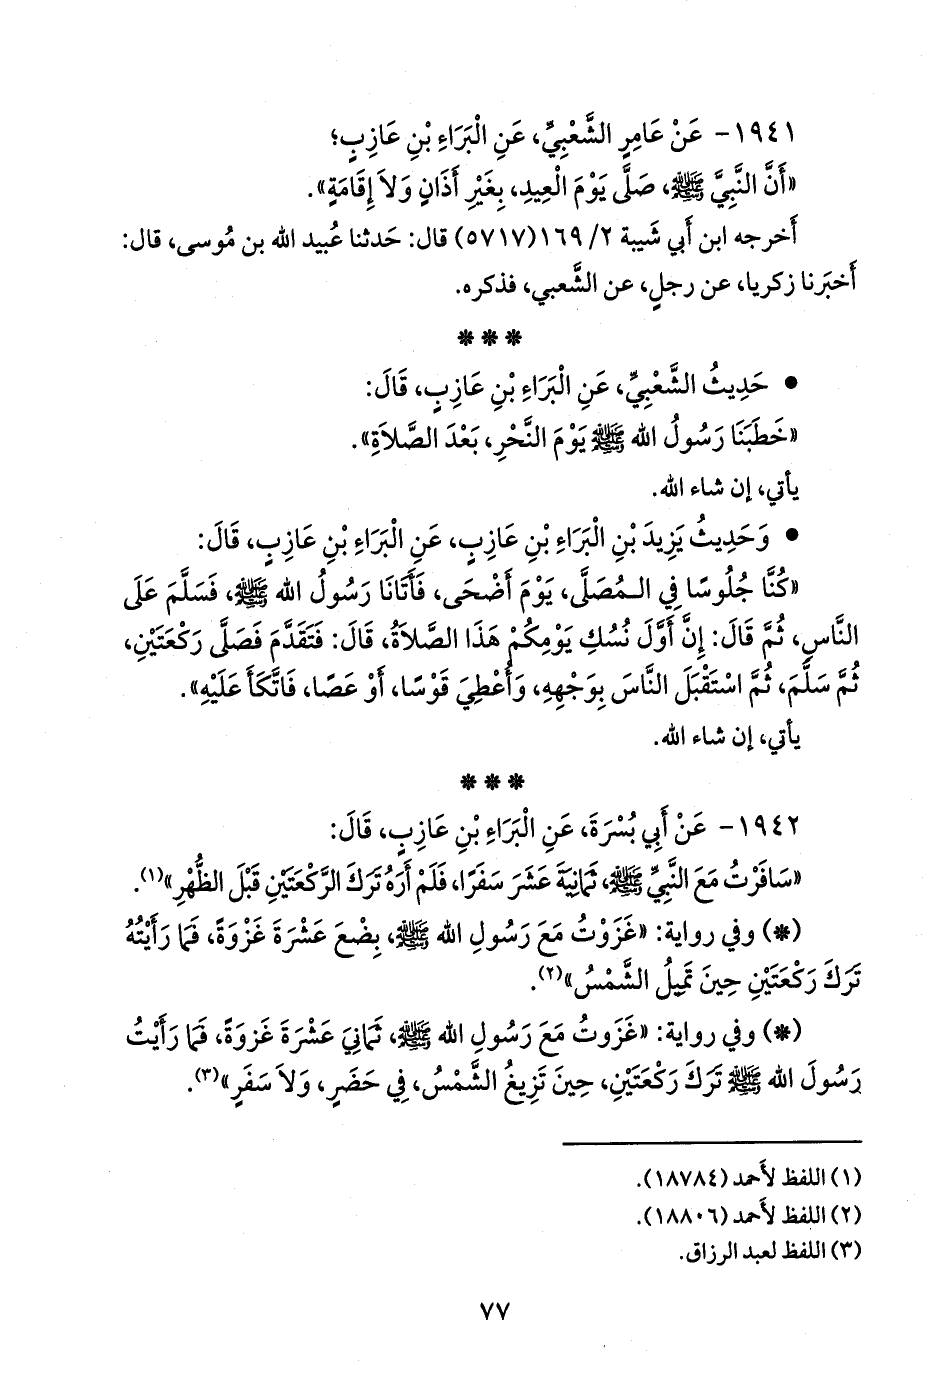 ١٩٤١- عَنْ عَامِرٍ الشَّعْبِيِّ، عَنِ الْبَرَاءِ بْنِ عَازِبٍ؛
«أَنَّ النَّبِيَّ ﷺ، صَلَّى يَوْمَ الْعِيدِ، بِغَيْرِ أَذَانٍ وَلاَ إِقَامَةٍ».
أَخرجه ابن أَبي شَيبة ٢/ ١٦٩(٥٧١٧) قال: حَدثنا عُبيد الله بن مُوسى، قال:
أَخبَرنا زكريا، عن رجلٍ، عن الشَّعبي، فذكره.
* * *
• حَدِيثُ الشَّعْبِيِّ، عَنِ الْبَرَاءِ بْنِ عَازِبٍ، قَالَ:
«خَطَبَنَا رَسُولُ الله ﷺ يَوْمَ النَّحْرِ، بَعْدَ الصَّلاَةِ».
يأتي، إن شاء الله.
• وَحَدِيثُ يَزِيدَ بْنِ الْبَرَاءِ بْنِ عَازِبٍ، عَنِ الْبَرَاءِ بْنِ عَازِبٍ، قَالَ:
«كُنَّا جُلُوسًا فِي الـمُصَلَّى، يَوْمَ أَضْحَى، فَأَتَانَا رَسُولُ الله ﷺ، فَسَلَّمَ عَلَى
النَّاسِ، ثُمَّ قَالَ: إِنَّ أَوَّلَ نُسُكِ يَوْمِكُمْ هَذَا الصَّلاَةُ، قَالَ: فَتَقَدَّمَ فَصَلَّى رَكْعَتَيْنِ،
ثُمَّ سَلَّمَ، ثُمَّ اسْتَقْبَلَ النَّاسَ بِوَجْهِهِ، وَأُعْطِيَ قَوْسًا، أَوْ عَصًا، فَاتَّكَأَ عَلَيْهِ».
يأتي، إن شاء الله.
* * *
١٩٤٢- عَنْ أَبِي بُسْرَةَ، عَنِ الْبَرَاءِ بْنِ عَازِبٍ، قَالَ:
«سَافَرْتُ مَعَ النَّبِيِّ ﷺ، ثَمَانِيَةَ عَشَرَ سَفَرًا، فَلَمْ أَرَهُ تَرَكَ الرَّكْعَتَيْنِ قَبْلَ الظُّهْرِ»(١).
(*) وفي رواية: «غَزَوْتُ مَعَ رَسُولِ الله ﷺ، بِضْعَ عَشْرَةَ غَزْوَةً، فَمَا رَأَيْتُهُ
تَرَكَ رَكْعَتَيْنِ حِينَ تَمِيلُ الشَّمْسُ»(٢).
(*) وفي رواية: «غَزَوتُ مَعَ رَسُولِ الله ﷺ، ثَمَانِيَ عَشْرَةَ غَزْوَةً، فَمَا رَأَيْتُ
رَسُولَ الله ﷺ تَرَكَ رَكْعَتَيْنِ، حِينَ تَزِيغُ الشَّمْسُ، فِي حَضَرٍ، وَلاَ سَفَرٍ»(٣).
(١) اللفظ لأَحمد (١٨٧٨٤).
(٢) اللفظ لأَحمد (١٨٨٠٦).
(٣) اللفظ لعبد الرزاق.
٧٧